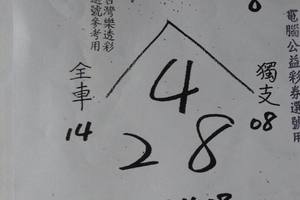 台灣樂透彩
選號參考用
電腦公益彩券選號用
8
全車
獨支
4
14
08
2 8